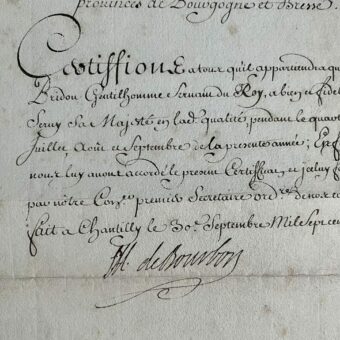 provinces de Bourgogne et Bresse.
Certiffions a tour quil appartiendra que
Bridou Gentilhomme servant du Roy, a bien et fidel
Servy Sa Majesté en lad. qualité, pendant le quart
Juillet, Août et Septembre de la presente année; En f
nous luy avons accordé le present Certificat, et iceluy f
par nôtre Con.er premier Secretaire ord.re de nos co
fait a Chantilly le 30.e Septembre Mil Sept cen
de Bourbon